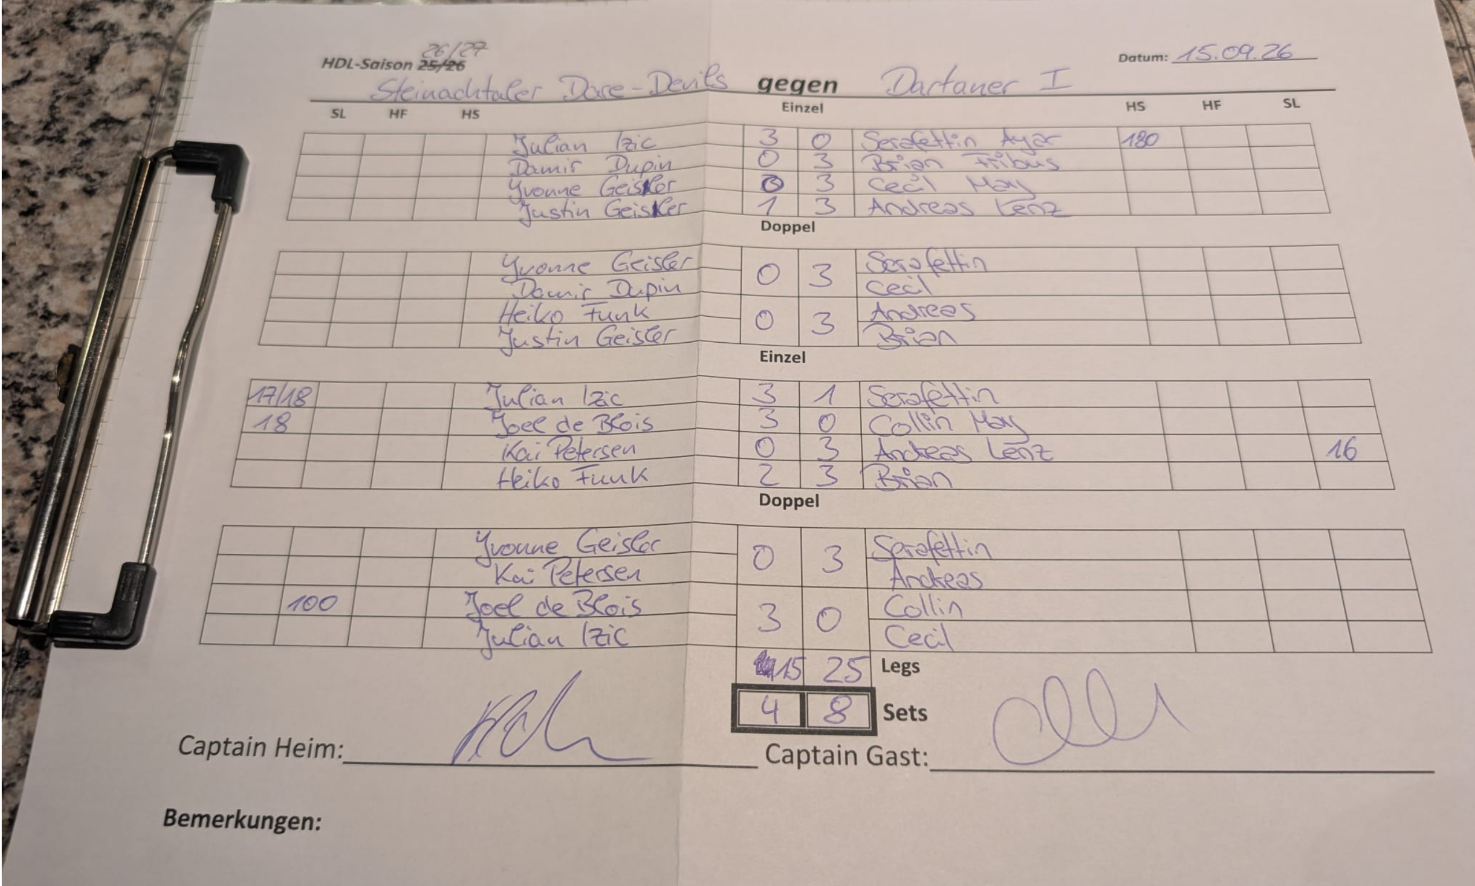 26/27
HDL-Saison 25/26 Datum: 15.09.26
Steinachtaler Dare-Devils gegen Dartaner I
SL HF HS Einzel HS HF SL
Julian Izic 3 0 Serafettin Ayar 180
Damir Dupin 0 3 Brian Fribus
Yvonne Geisler 0 3 Cecil May
Justin Geisler 1 3 Andreas Lenz
Doppel
Yvonne Geisler 0 3 Serafettin
Damir Dupin Cecil
Heiko Funk 0 3 Andreas
Justin Geisler Brian
Einzel
17/18 Julian Izic 3 1 Serafettin
18 Joel de Blois 3 0 Collin May
Kai Petersen 0 3 Andreas Lenz 16
Heiko Funk 2 3 Brian
Doppel
Yvonne Geisler 0 3 Serafettin
Kai Petersen Andreas
100 Joel de Blois 3 0 Collin
Julian Izic Cecil
15 25 Legs
4 8 Sets
Captain Heim: Captain Gast:
Bemerkungen: